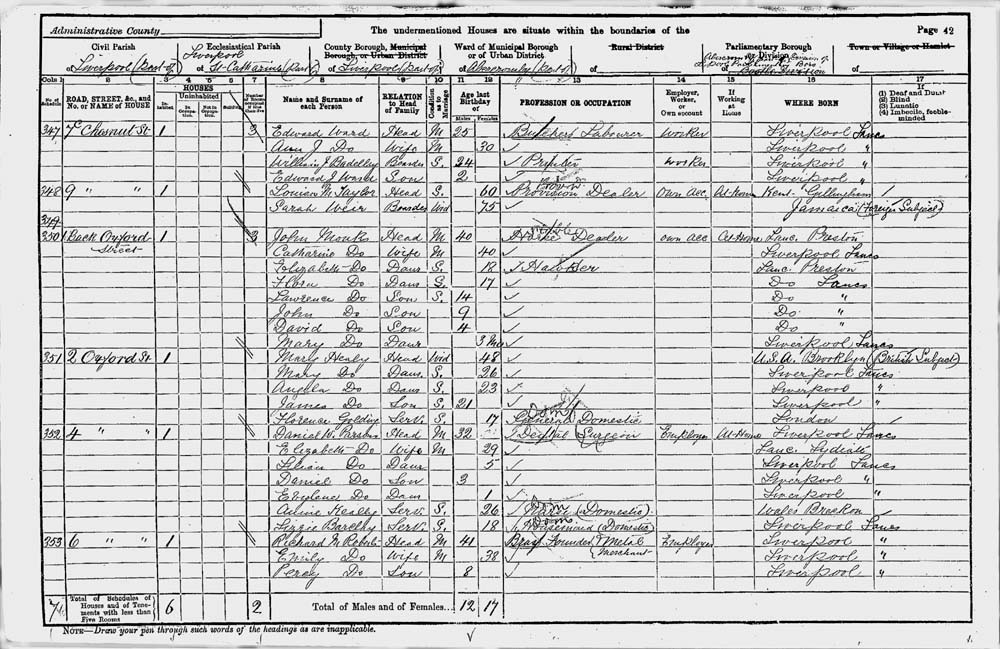 Administrative County
The undermentioned Houses are situate within the boundaries of the
Page 42
Civil Parish
of Liverpool (Part of)
Ecclesiastical Parish
Liverpool
of St Catharines (Part)
County Borough, Municipal Borough, or Urban District
of Liverpool (Part of)
Ward of Municipal Borough or of Urban District
of Abercromby (Part of)
Rural District
of
Parliamentary Borough or Division
of
Town or Village or Hamlet
of
Cols. 1 2 3 4 5 6 7 8 9 10 11 12 13 14 15 16 17
ROAD, STREET, &c., and No. or NAME of HOUSE
HOUSES
Inhabited
Uninhabited
In Occupation.
Not in Occupation.
Building
Name and Surname of each Person
RELATION to Head of Family
Condition as to Marriage
Age last Birthday of
Males Females
PROFESSION OR OCCUPATION
Employer, Worker, or Own account
If Working at Home
WHERE BORN
If (1) Deaf and Dumb (2) Blind (3) Lunatic (4) Imbecile, feeble-minded
347 7c Chesnut St 1 3 Edward Ward Head M 25 Butchers Labourer Worker Liverpool Lancs
Ann J Do Wife M 30 Liverpool "
William J Badelley Boarder S. 24 Printer Worker Liverpool "
Edward J Ward Son 2 Liverpool "
348 9 " " 1 Louisa M. Taylor Head S. 60 Provision Dealer Own acc. At Home Kent. Gillingham
Sarah Weir Boarder Wid 75 Jamaica (Foreign Subject)
349
350 1 Back Oxford Street 1 3 John Monks Head M 40 Dealer own acc At Home Lanc. Preston
Catharine Do Wife M 40 Liverpool Lancs
Elizabeth Do Daur S. 18 Hawker Lanc. Preston
Flora Do Daur S. 17 Do Lancs
Lawrence Do Son S. 14 Do "
John Do Son 9 Do "
David Do Son 4 Do "
Mary Do Daur 3 Mos Liverpool Lancs
351 2 Oxford St 1 Mary Healy Head Wid 48 U.S.A. Brooklyn (British Subject)
Mary Do Daur S. 26 Liverpool Lancs
Angela Do Daur S. 23 Liverpool "
James Do Son S. 21 Liverpool "
Florence Golding Serv. S. 17 General Domestic London
352 4 " " 1 Daniel W. Parsons Head M 32 Dental Surgeon Employer At Home Liverpool Lancs
Elizabeth Do Wife M 29 Lanc. Lydiate
Lilian Do Daur 5 Liverpool Lancs
Daniel Do Son 3 Liverpool "
Do Daur 1 Liverpool "
Annie Healey Serv. S. 26 Nurse (Domestic) Wales Brecken
Lizzie Barelby Serv. S. 18 Housemaid (Domestic) Liverpool Lancs
353 6 " " 1 Richard Head M 41 Brass Founder & Metal Merchant Employer Liverpool "
Emily Do Wife M 38 Liverpool "
Percy Do Son 8 Liverpool "
74 Total of Schedules of Houses and of Tenements with less than Five Rooms 6 2 Total of Males and of Females... 12 17
NOTE—Draw your pen through such words of the headings as are inapplicable.